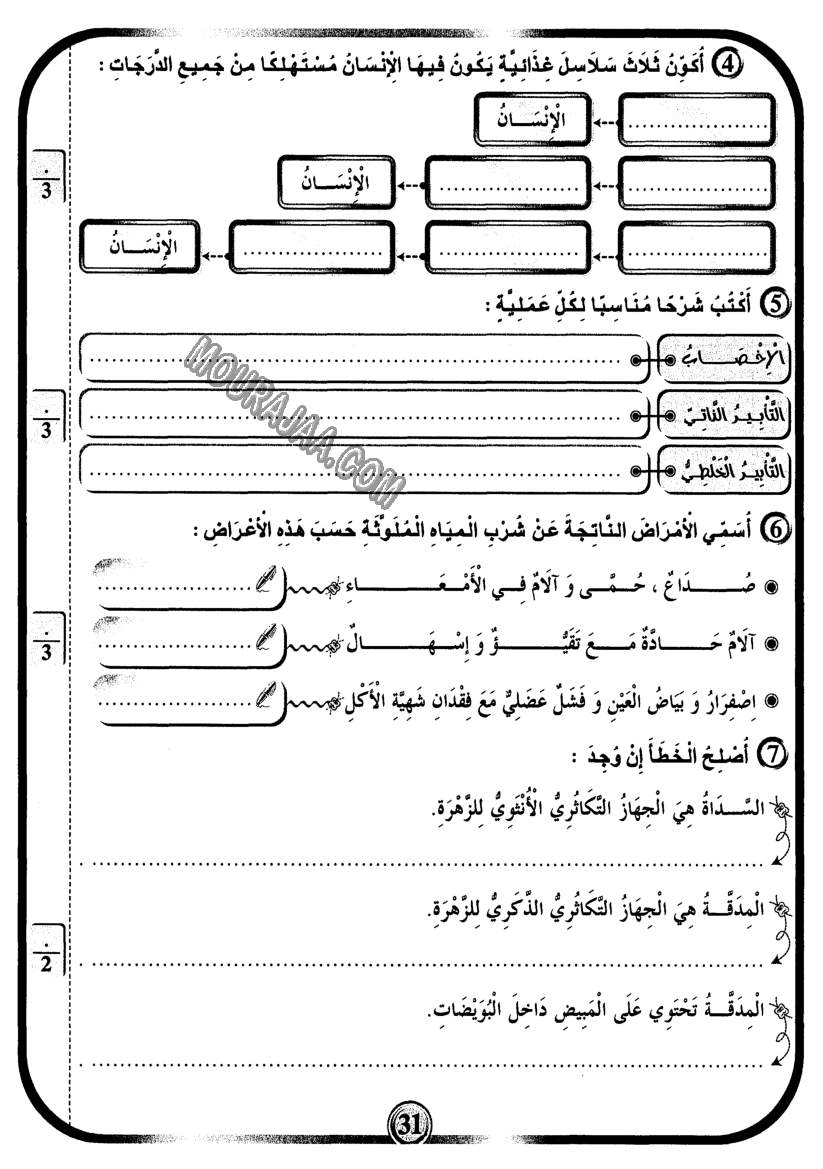 4 أُكَوِّنُ ثَلَاثَ سَلَاسِلَ غِذَائِيَّةٍ يَكُونُ فِيهَا الْإِنْسَانُ مُسْتَهْلِكًا مِنْ جَمِيعِ الدَّرَجَاتِ :
.................... الْإِنْسَـــانُ
.................... .................... الْإِنْسَـــانُ
.................... .................... .................... الْإِنْسَـــانُ
3
5 أَكْتُبُ شَرْحًا مُنَاسِبًا لِكُلِّ عَمَلِيَّةٍ :
الْإِخْصَـــابُ ....................
التَّأْبِيرُ الذَّاتِيّ ....................
التَّأْبِيرُ الْخَلْطِيُّ ....................
3
MOURAJAA.COM
6 أُسَمِّي الْأَمْرَاضَ النَّاتِجَةَ عَنْ شُرْبِ الْمِيَاهِ الْمُلَوَّثَةِ حَسَبَ هَذِهِ الْأَعْرَاضِ :
صُـــدَاعٌ ، حُـمَّـــى وَ آلَامٌ فِـــي الْأَمْـعَـــــاءِ ....................
آلَامٌ حَـــــادَّةٌ مَـــعَ تَقَيُّـــــؤٌ وَ إِسْـــهَـــــالٌ ....................
3
اِصْفِرَارُ وَ بَيَاضُ الْعَيْنِ وَ فَشَلٌ عَضَلِيٌّ مَعَ فِقْدَانِ شَهِيَّةِ الْأَكْلِ ....................
7 أُصْلِحُ الْخَطَأَ إِنْ وُجِدَ :
السَّـــدَاةُ هِيَ الْجِهَازُ التَّكَاثُرِيُّ الْأُنْثَوِيُّ لِلزَّهْرَةِ.
....................
الْمِدَقَّـــةُ هِيَ الْجِهَازُ التَّكَاثُرِيُّ الذَّكَرِيُّ لِلزَّهْرَةِ.
2
....................
الْمِدَقَّـــةُ تَحْتَوِي عَلَى الْمَبِيضِ دَاخِلَ الْبُوَيْضَاتِ.
....................
31